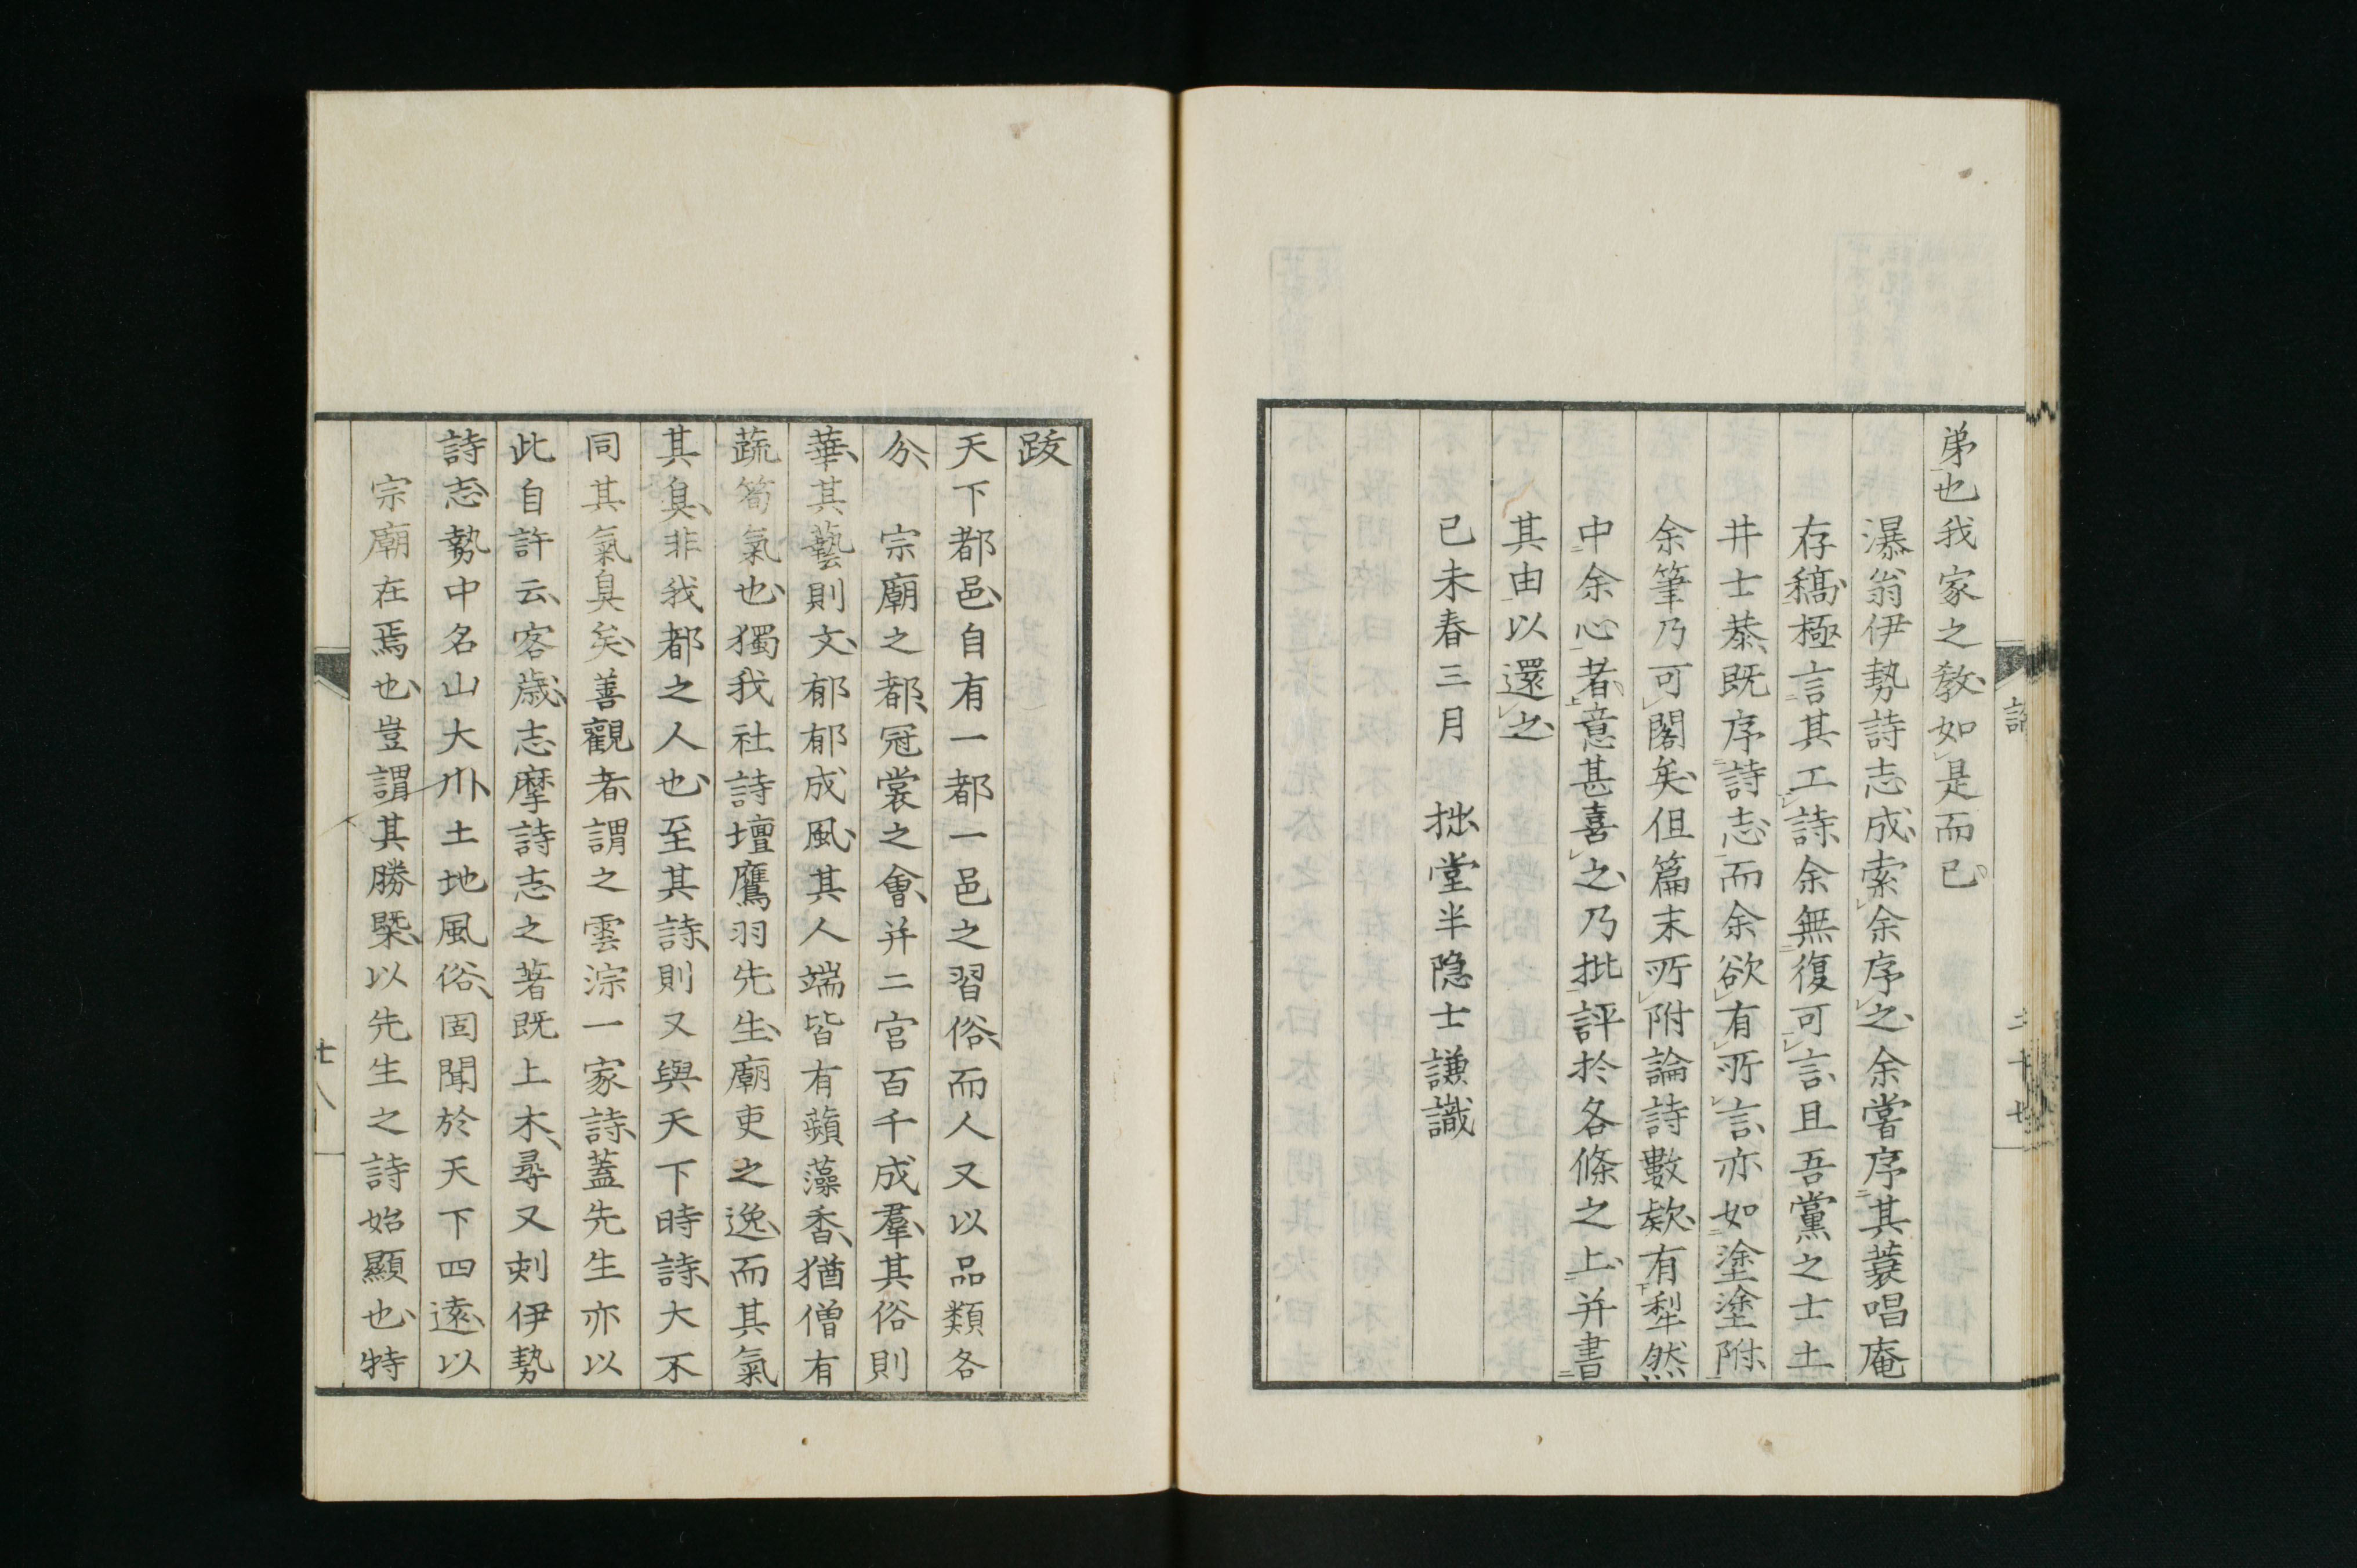 弟也我家之教如是而已
瀑翁伊勢詩志成索余序之余嘗序其蓑唱庵
存稿極言其工詩余無復可言且吾黨之士土
井士恭既序詩志而余欲有所言亦如塗塗附
余筆乃可閣矣但篇末所附論詩數欵有犁然
中余心者意甚喜之乃批評於各條之上并書
其由以還之
己未春三月　拙堂半隐士謙識
跋
天下都邑自有一都一邑之習俗而人又以品類各
分　宗廟之都冠裳之會并二宮百千成羣其俗則
華其藝則文郁郁成風其人端皆有蘋藻香猶僧有
蔬筍氣也獨我社詩壇鷹羽先生廟吏之逸而其氣
其臭非我都之人也至其詩則又與天下時詩大不
同其氣臭矣善觀者謂之雲淙一家詩蓋先生亦以
此自許云客歳志摩詩志之著既上木尋又刻伊勢
詩志勢中名山大川土地風俗固聞於天下四遠以
宗廟在焉也豈謂其勝槩以先生之詩始顯也特
二十七